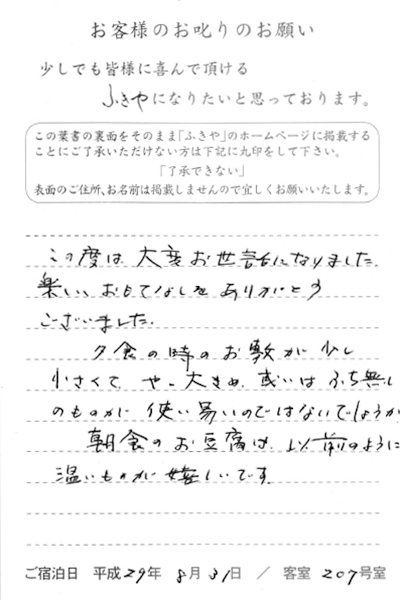 お客様のお叱りのお願い
少しでも皆様に喜んで頂ける
ふきやになりたいと思っております。
この葉書の裏面をそのまま「ふきや」のホームページに掲載する
ことにご了承いただけない方は下記に丸印をして下さい。
「了承できない」
表面のご住所、お名前は掲載しませんので宜しくお願いいたします。
この度は 大変お世話になりました
楽しい、おもてなしを ありがとう
ございました.
夕食の時のお敷が 少し
小さくて や、大きめ. 或いは ふち無し
のものが 使い易いのではないでしょうか
朝食のお豆腐は、以前のように
温いものが 嬉しいです.
ご宿泊日 平成29年 8月31日 / 客室 207号室